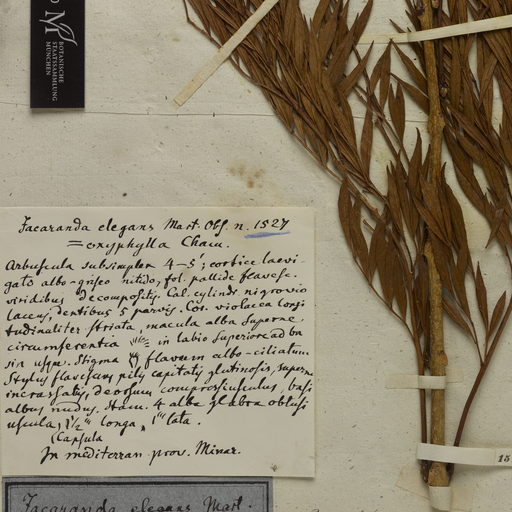 M
BOTANISCHE
STAATSSAMMLUNG
MÜNCHEN
Jacaranda elegans Mart. Obs. n. 1527
= oxyphylla Cham.
Arbuscula subsimplex 4-5'; cortice laevi-
gato albo-griseo nitido, fol. pallide flavesc.
viridibus decompositis. Cal. cylindr nigrovio
laceus, dentibus 5 parvis. Cor. violacea longi
tudinaliter striata, macula alba superne
circumferentia in labio superiore ad ba
sin usque. Stigma flavum albo-ciliatum
Stylus flavescens pilis capitatis glutinosis, superne
incrassatus, deorsum compressiusculus, basi
albus nudus. Stam. 4 alba glabra obtusi
uscula, 1½" longa, 1''' lata.
(Capsula
In mediterran prov. Minar.
Jacaranda elegans Mart.
15